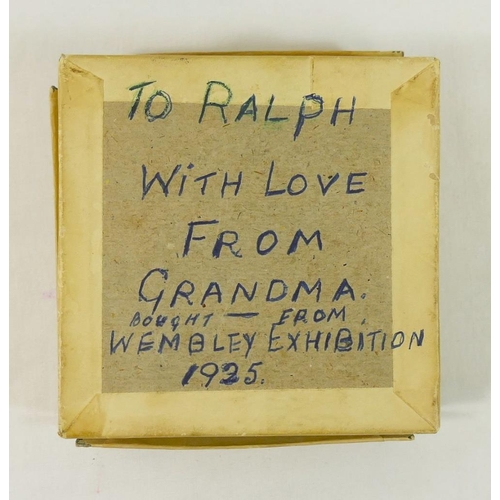 TO RALPH
WITH LOVE
FROM
GRANDMA.
BOUGHT — FROM.
WEMBLEY EXHIBITION
1925.